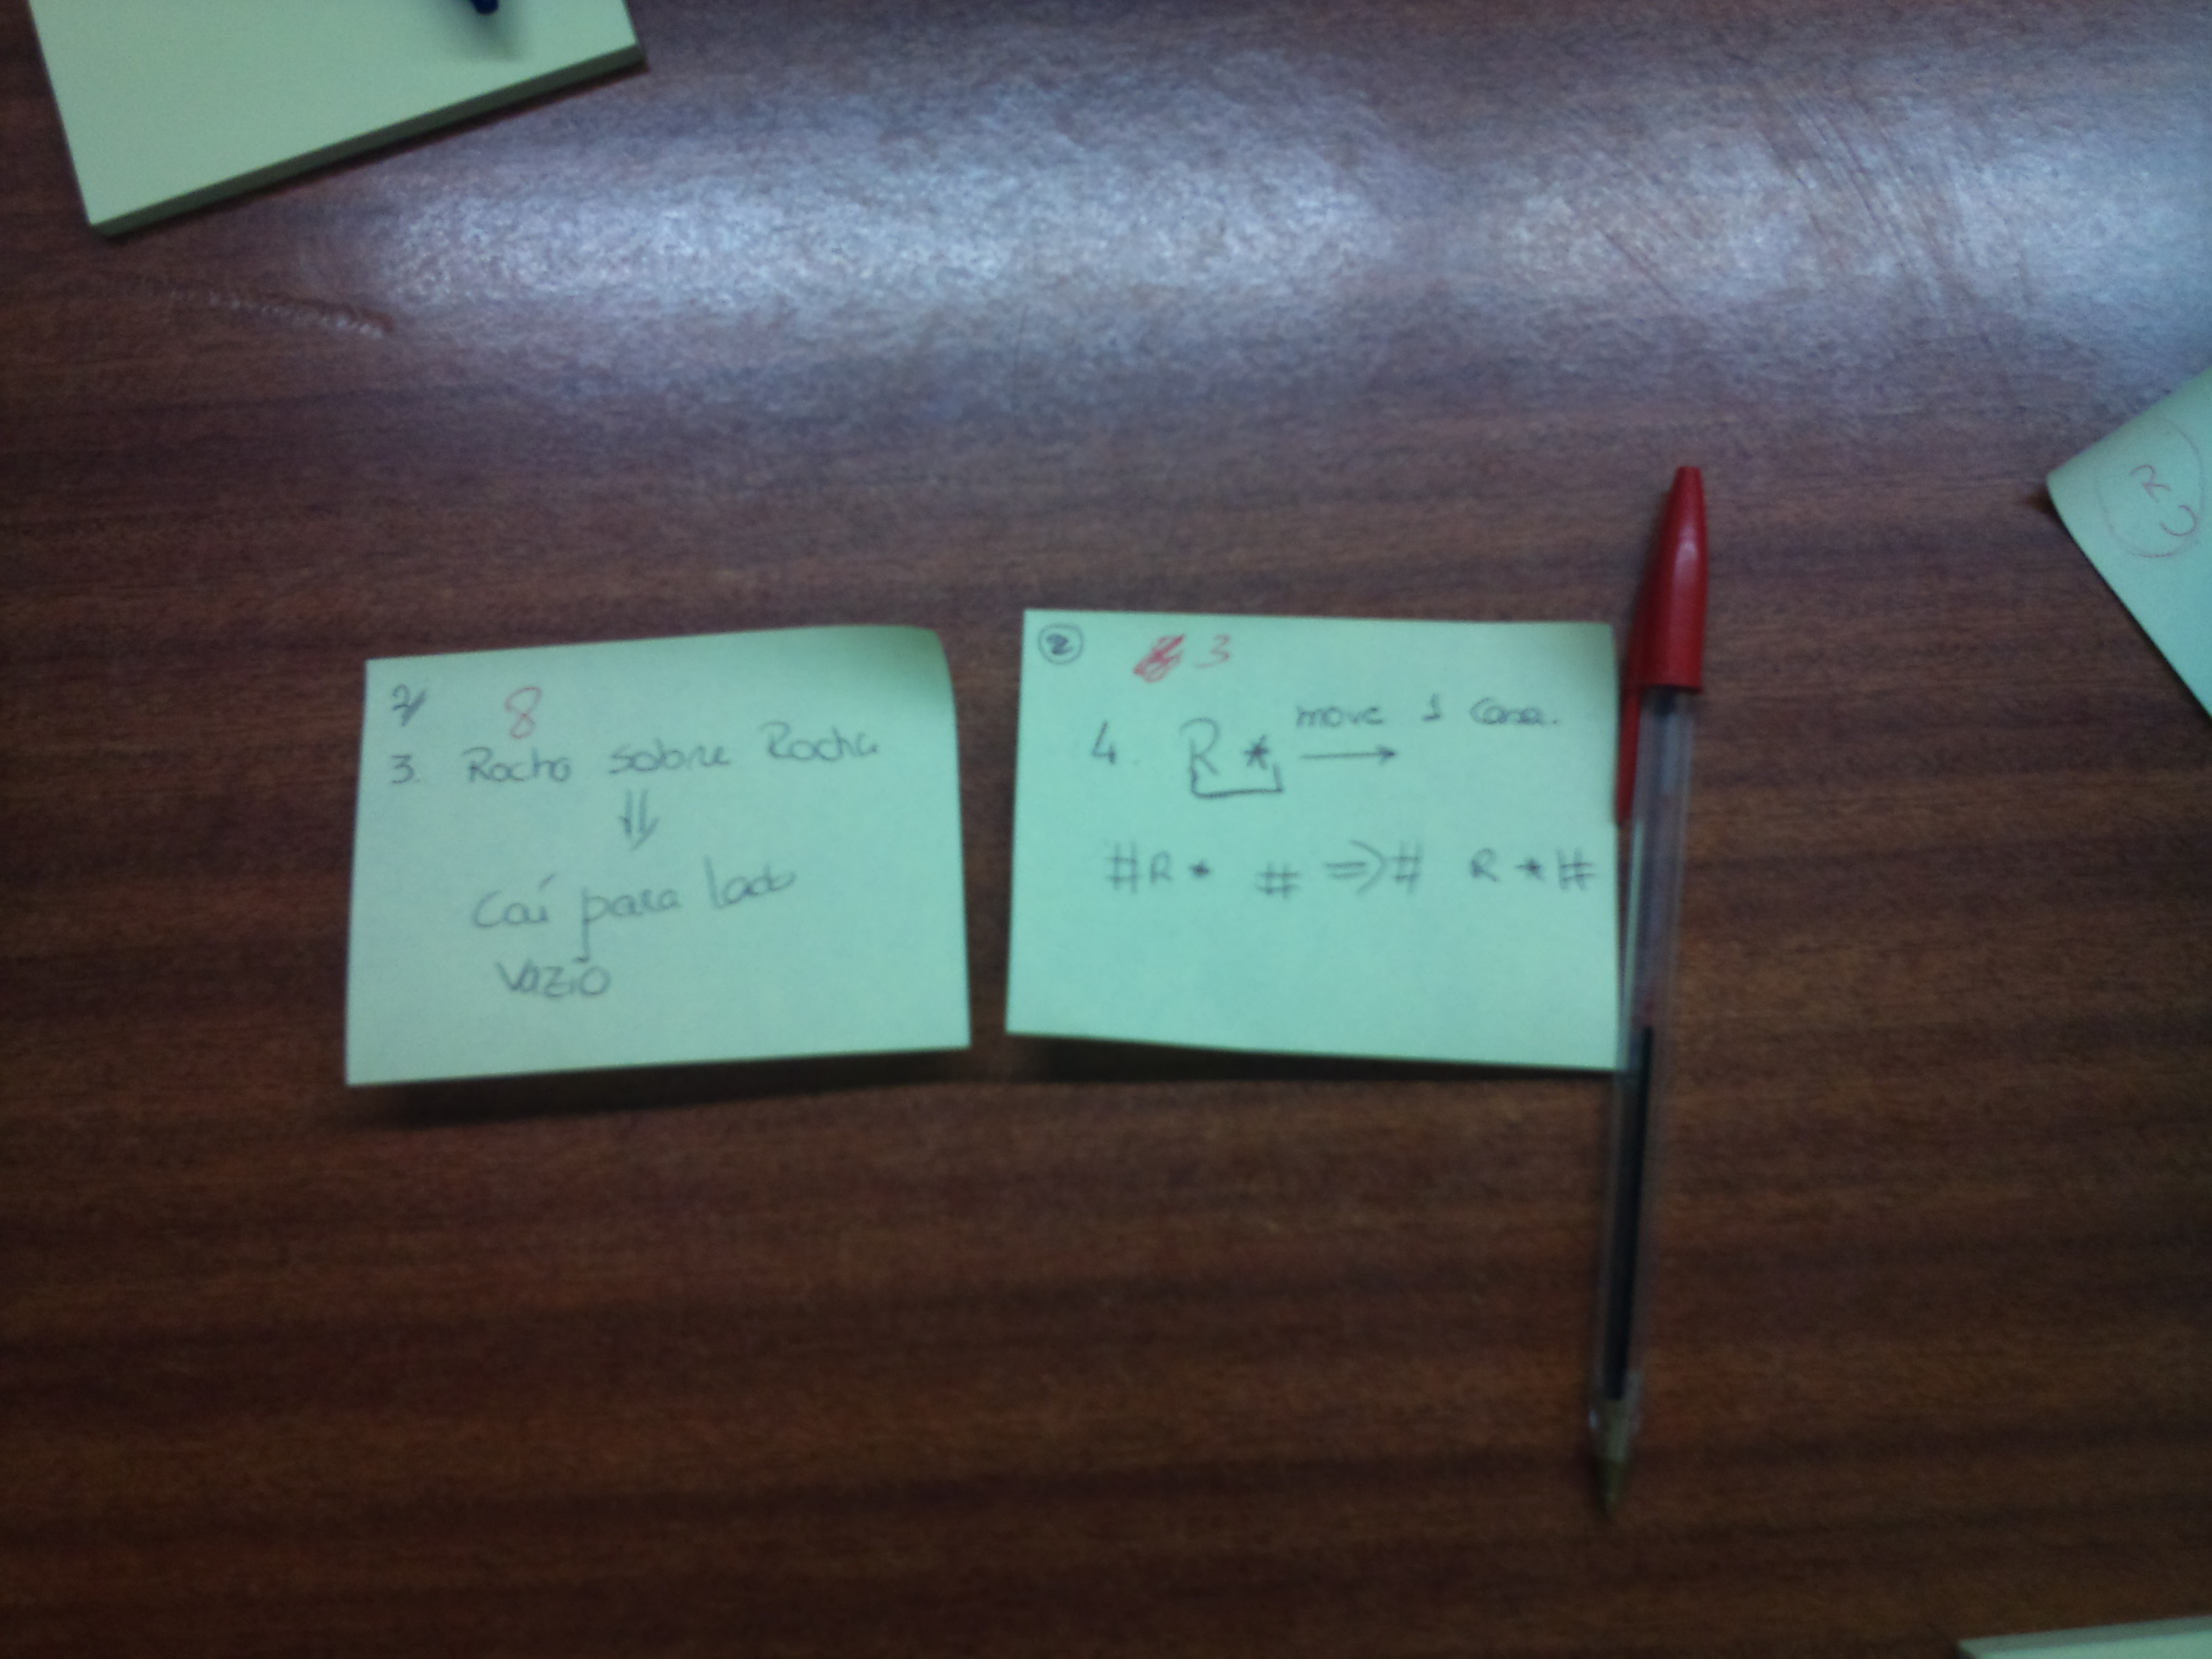 2/ 8
3. Rocha sobre Rocha
⇓
Caí para lado
vazio
2 3
4. R * move 1 casa.
→
#R * # => # R * #
R